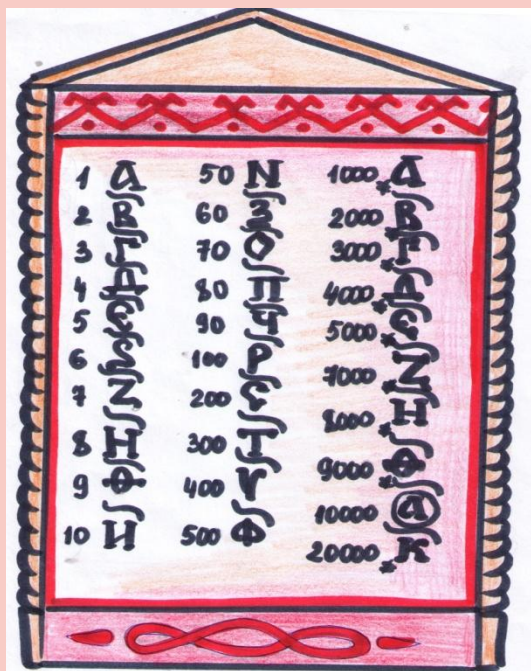 1 А
2 В
3 Г
4 Д
5 Є
6 Ѕ
7 Z
8 Н
9 Ф
10 И
50 N
60 З
70 О
80 П
90 Ч
100 Р
200 Є
300 Т
400 Ѵ
500 Ф
1000 А
2000 В
3000 Г
4000 Д
5000 Є
7000 Z
8000 Н
9000 Ф
10000 А
20000 К